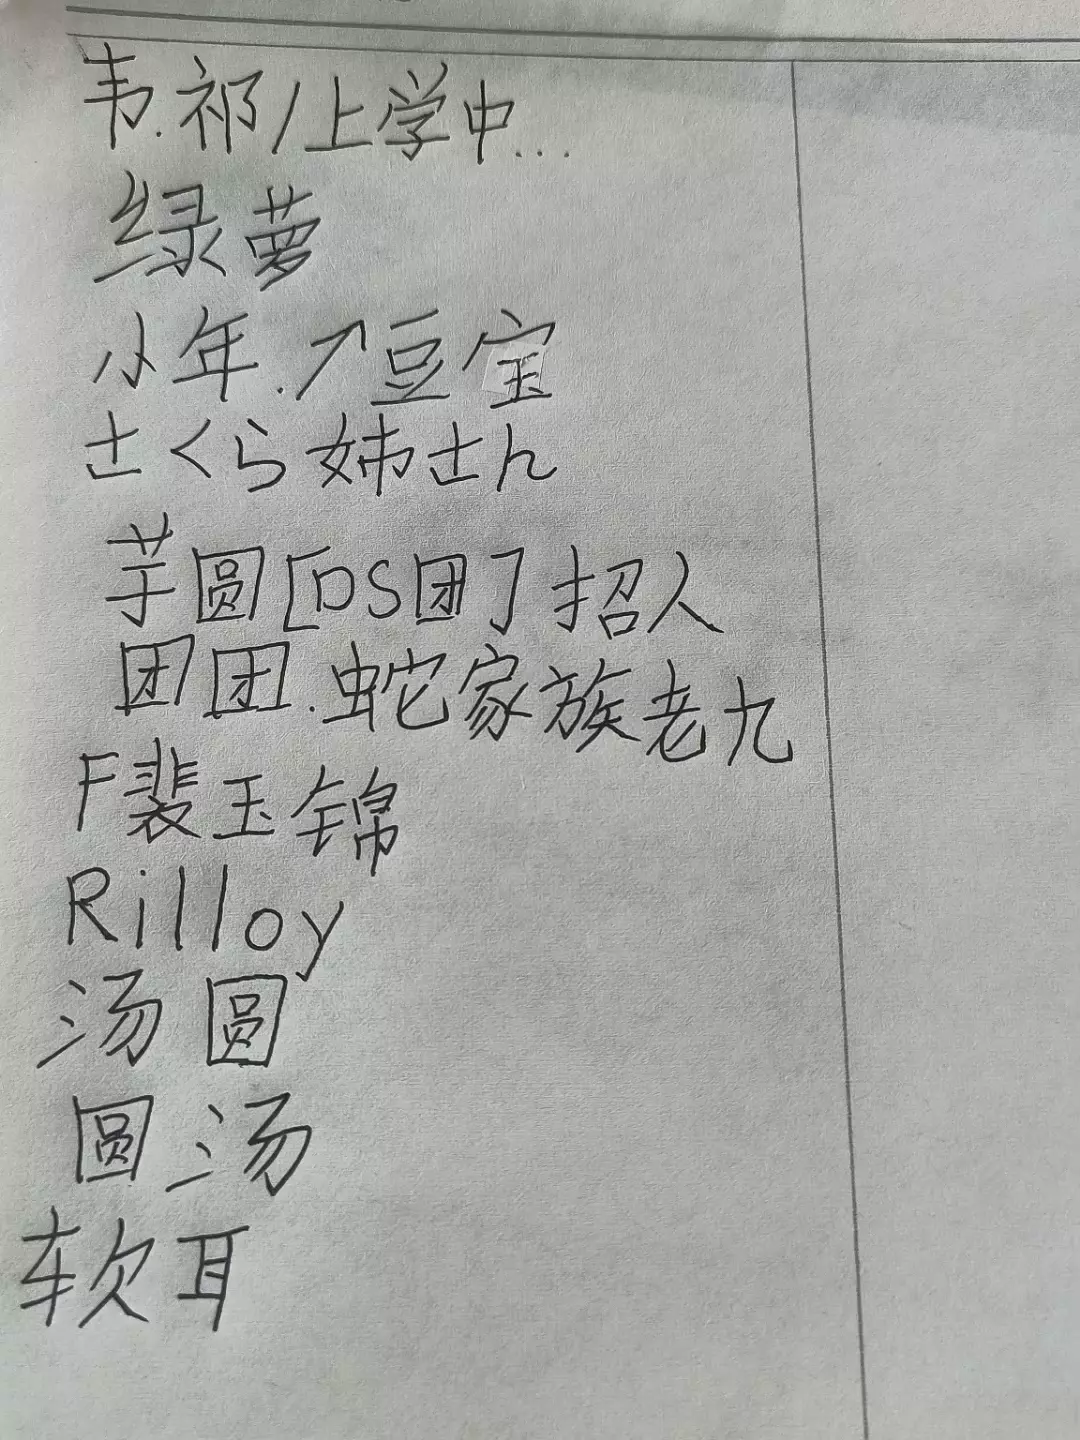 韦.祁/上学中...
绿萝
小年.↗豆宝
さくら姉さん
芋圆[DS团]招人
团团.蛇家族老九
F裴玉锦
Rilloy
汤圆
圆汤
软耳